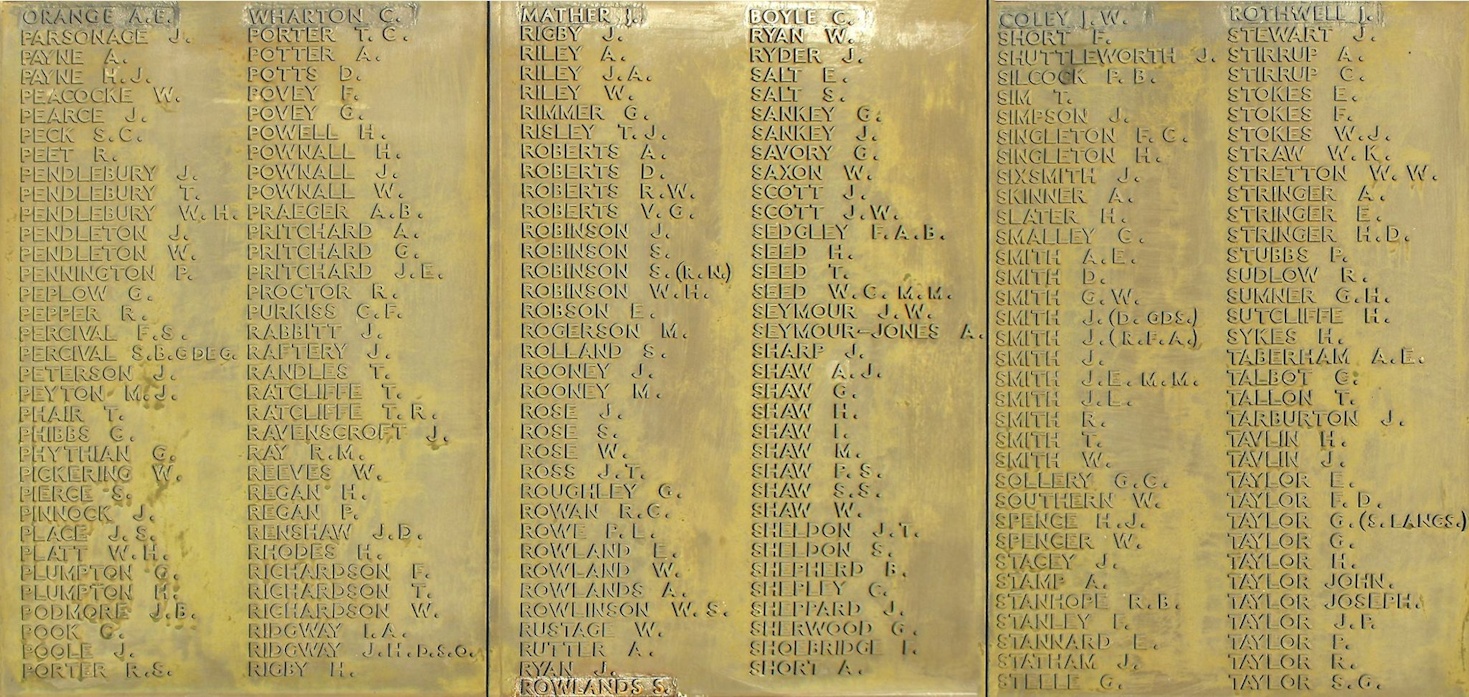 ORANGE A.E.
PARSONAGE J.
PAYNE A.
PAYNE H.J.
PEACOCKE W.
PEARCE J.
PECK S.C.
PEET R.
PENDLEBURY J.
PENDLEBURY T.
PENDLEBURY W.H.
PENDLETON J.
PENDLETON W.
PENNINGTON P.
PEPLOW G.
PEPPER R.
PERCIVAL F.S.
PERCIVAL S.B.GDEG.
PETERSON J.
PEYTON M.J.
PHAIR T.
PHIBBS C.
PHYTHIAN G.
PICKERING W.
PIERCE S.
PINNOCK J.
PLACE J.S.
PLATT W.H.
PLUMPTON G.
PLUMPTON H.
PODMORE J.B.
POOK G.
POOLE J.
PORTER R.S.
WHARTON C.
PORTER T.C.
POTTER A.
POTTS D.
POVEY F.
POVEY G.
POWELL H.
POWNALL H.
POWNALL J.
POWNALL W.
PRAEGER A.B.
PRITCHARD A.
PRITCHARD G.
PRITCHARD J.E.
PROCTOR R.
PURKISS C.F.
RABBITT J.
RAFTERY J.
RANDLES T.
RATCLIFFE T.
RATCLIFFE T.R.
RAVENSCROFT J.
RAY R.M.
REEVES W.
REGAN H.
REGAN P.
RENSHAW J.D.
RHODES H.
RICHARDSON F.
RICHARDSON T.
RICHARDSON W.
RIDGWAY I.A.
RIDGWAY J.H.D.S.O.
RIGBY H.
MATHER J.
RIGBY J.
RILEY A.
RILEY J.A.
RILEY W.
RIMMER G.
RISLEY T.J.
ROBERTS A.
ROBERTS D.
ROBERTS R.W.
ROBERTS V.G.
ROBINSON J.
ROBINSON S.
ROBINSON S.(R.N.)
ROBINSON W.H.
ROBSON E.
ROGERSON M.
ROLLAND S.
ROONEY J.
ROONEY M.
ROSE J.
ROSE S.
ROSE W.
ROSS J.T.
ROUGHLEY G.
ROWAN R.C.
ROWE P.L.
ROWLAND E.
ROWLAND W.
ROWLANDS A.
ROWLINSON W.S.
RUSTAGE W.
RUTTER A.
RYAN J.
ROWLANDS S.
BOYLE C.
RYAN W.
RYDER J.
SALT E.
SALT S.
SANKEY G.
SANKEY J.
SAVORY G.
SAXON W.
SCOTT J.
SCOTT J.W.
SEDGLEY F.A.B.
SEED H.
SEED T.
SEED W.C. M.M.
SEYMOUR J.W.
SEYMOUR-JONES A.
SHARP J.
SHAW A.J.
SHAW G.
SHAW H.
SHAW I.
SHAW M.
SHAW P.S.
SHAW S.S.
SHAW W.
SHELDON J.T.
SHELDON S.
SHEPHERD B.
SHEPLEY C.
SHEPPARD J.
SHERWOOD G.
SHOEBRIDGE I.
SHORT A.
COLEY J.W.
SHORT F.
SHUTTLEWORTH J.
SILCOCK P.B.
SIM T.
SIMPSON J.
SINGLETON F.C.
SINGLETON H.
SIXSMITH J.
SKINNER A.
SLATER H.
SMALLEY C.
SMITH A.E.
SMITH D.
SMITH G.W.
SMITH J.(D.GDS.)
SMITH J.(R.F.A.)
SMITH J.
SMITH J.E. M.M.
SMITH J.L.
SMITH R.
SMITH T.
SMITH W.
SOLLERY G.C.
SOUTHERN W.
SPENCE H.J.
SPENCER W.
STACEY J.
STAMP A.
STANHOPE R.B.
STANLEY F.
STANNARD E.
STATHAM J.
STEELE G.
ROTHWELL J.
STEWART J.
STIRRUP A.
STIRRUP C.
STOKES E.
STOKES F.
STOKES W.J.
STRAW W.K.
STRETTON W.W.
STRINGER A.
STRINGER E.
STRINGER H.D.
STUBBS P.
SUDLOW R.
SUMNER G.H.
SUTCLIFFE H.
SYKES H.
TABERHAM A.E.
TALBOT G.
TALLON T.
TARBURTON J.
TAVLIN H.
TAVLIN J.
TAYLOR E.
TAYLOR F.D.
TAYLOR G.(S.LANCS.)
TAYLOR G.
TAYLOR H.
TAYLOR JOHN.
TAYLOR JOSEPH.
TAYLOR J.P.
TAYLOR P.
TAYLOR R.
TAYLOR S.G.